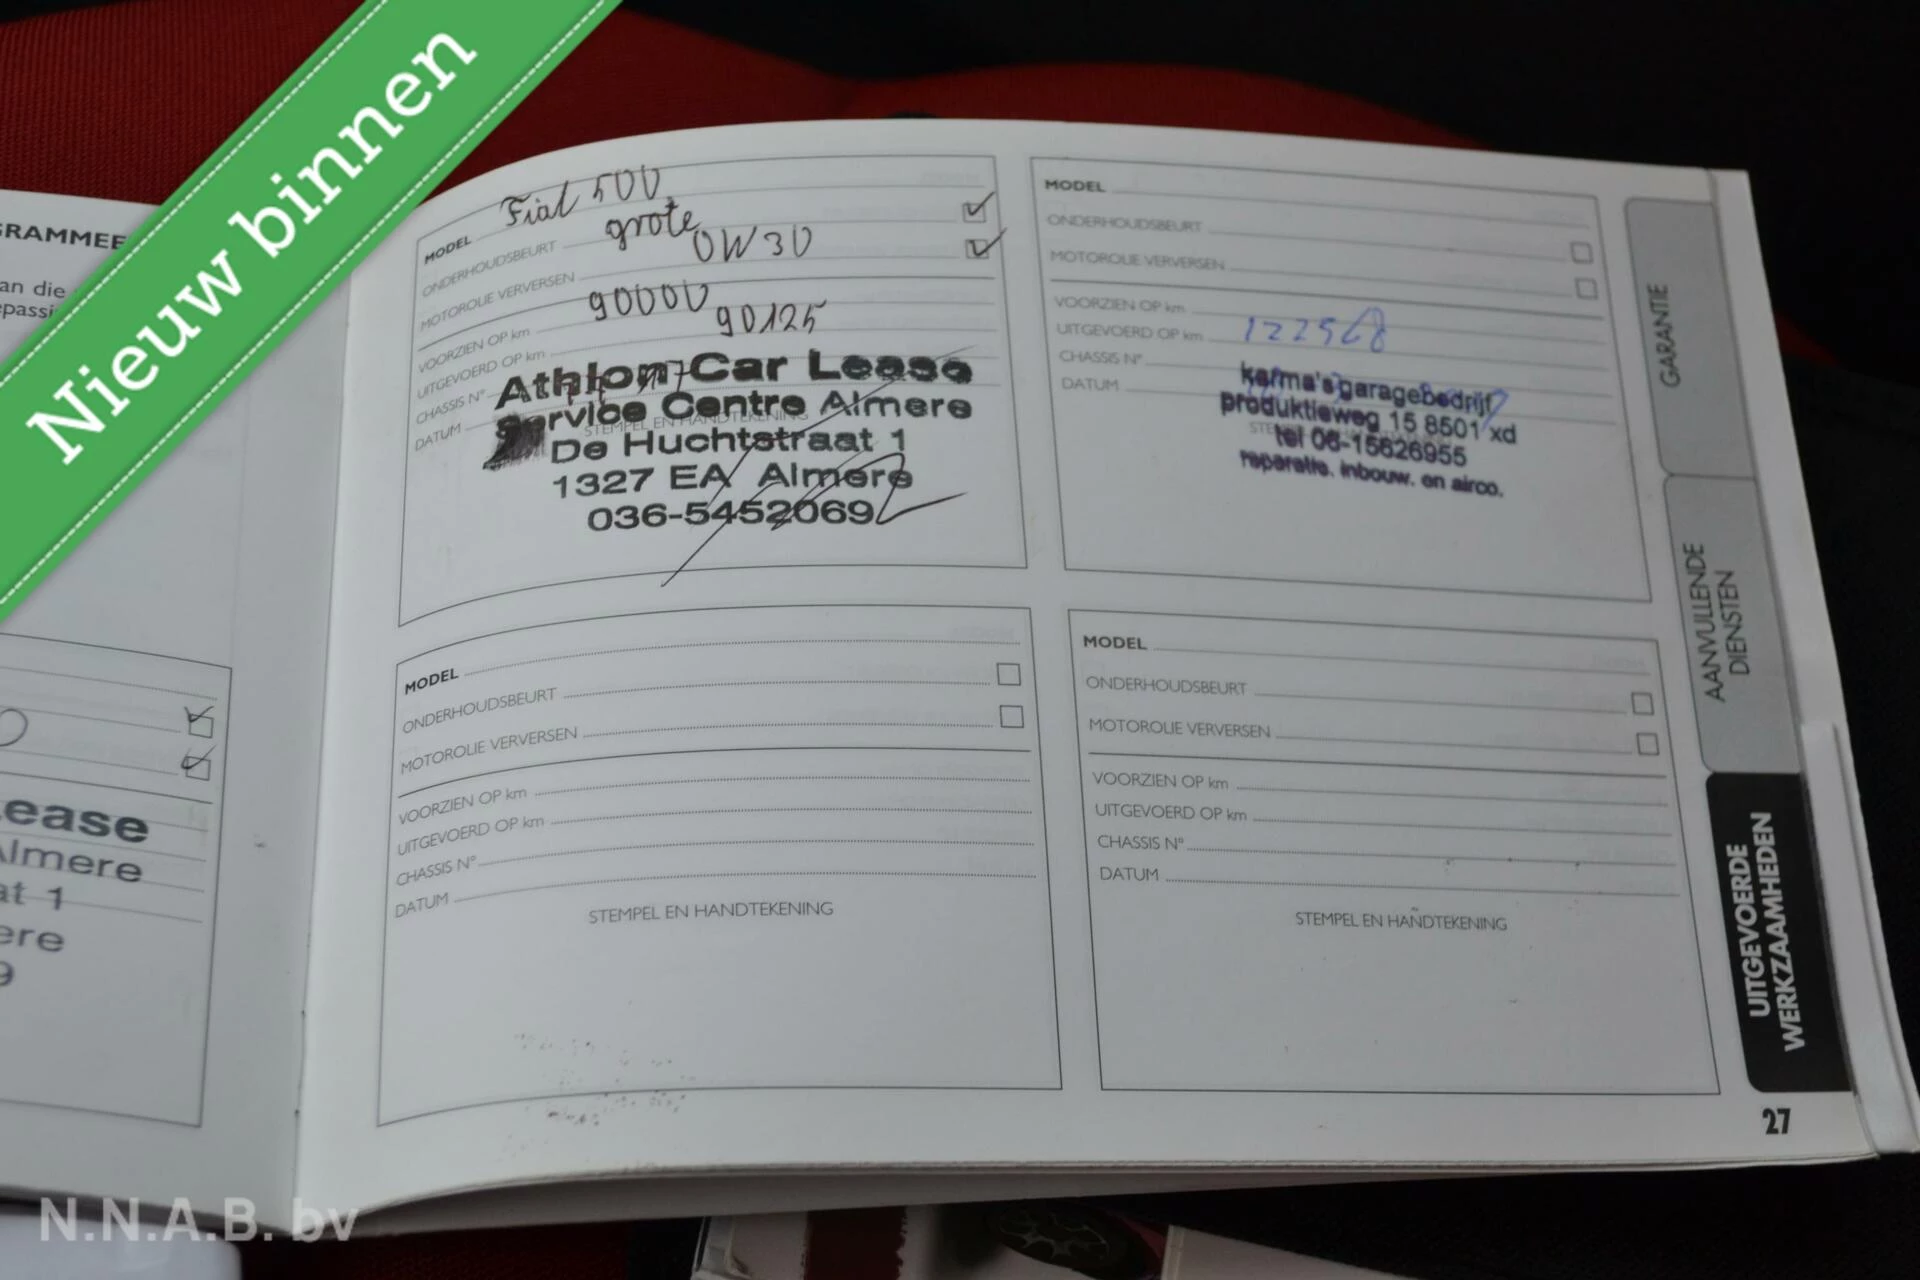 Nieuw binnen
GRAMMEE
an die
epassi
ease
Almere
at 1
ere
9
MODEL Fiat 500
ONDERHOUDSBEURT grote
MOTOROLIE VERVERSEN 0W30
VOORZIEN OP km 90000
UITGEVOERD OP km 90125
CHASSIS N°
DATUM
STEMPEL EN HANDTEKENING
Athlon Car Lease
Service Centre Almere
De Huchtstraat 1
1327 EA Almere
036-5452069
MODEL
ONDERHOUDSBEURT
MOTOROLIE VERVERSEN
VOORZIEN OP km
UITGEVOERD OP km
CHASSIS N°
DATUM
karma's garagebedrijf
produktieweg 15 8501 xd
tel 06-15626955
reparatie. inbouw. en airco.
MODEL
ONDERHOUDSBEURT
MOTOROLIE VERVERSEN
VOORZIEN OP km
UITGEVOERD OP km
CHASSIS N°
DATUM
STEMPEL EN HANDTEKENING
MODEL
ONDERHOUDSBEURT
MOTOROLIE VERVERSEN
VOORZIEN OP km
UITGEVOERD OP km
CHASSIS N°
DATUM
STEMPEL EN HANDTEKENING
GARANTIE
AANVULLENDE
DIENSTEN
UITGEVOERDE
WERKZAAMHEDEN
27
N.N.A.B. bv